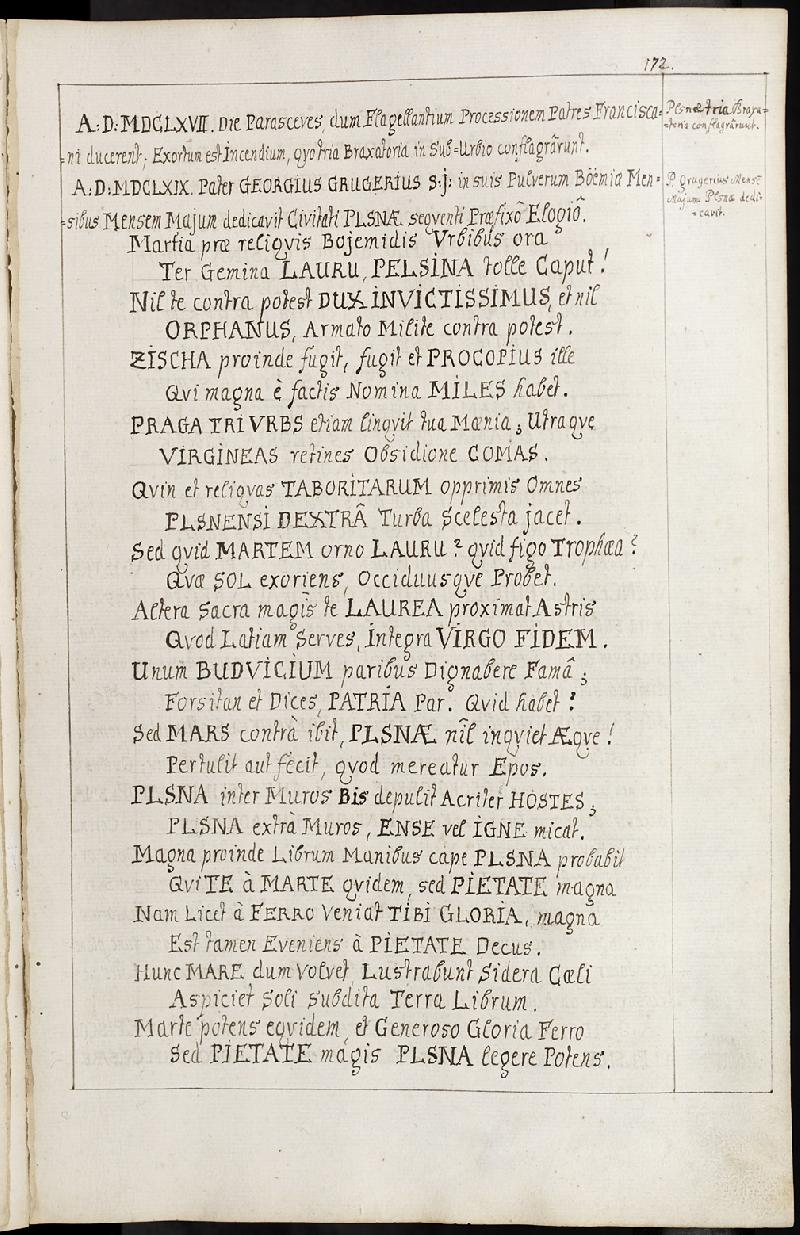 172.
A: D: MDCLXVII. Die Parasceves, dum Flagellantium Processionem Patres Francisca=
=ni ducerent, Exortum est Incendium, qvo tria Braxatoria in Sub=Urbio conflagrârunt.
A: D: MDCLXIX. Pater GEORGIUS GRUGERIUS S: J: in suis Pulverum Boëmiæ Men=
=sibus Mensem Majum dedicavit Civitati PLSNÆ seqventi Præfixô Elogiô.
Martia præ reliqvis Bojemidis Vrbibus ora
Ter Gemina LAURU, PELSINA tolle Caput!
Nil te contra potest DUX INVICTISSIMUS, et nil
ORPHANUS, Armato Milite contra potest.
ZISCHA proinde fugit, fugit et PROCOPIUS ille
Qvi magna è factis Nomina MILES habet.
PRAGA TRI VRBS etiam linqvit tua Mœnia; Utraqve
VIRGINEAS retines Obsidione COMAS.
Qvin et reliqvas TABORITARUM opprimis Omnes
PLSNENSI DEXTRÂ Turba Scelesta jacet.
Sed qvid MARTEM orno LAURU? qvid figo Trophæa?
Qvæ SOL exoriens, Occiduusqve Probet.
Altera Sacra magis te LAUREA proximat Astris
Qvod Latiam Serves, Integra VIRGO FIDEM.
Unum BUDVICIUM paribus Dignabere Famâ;
Forsitan et Dices, PATRIA Par. Qvid habet?
Sed MARS contrà ibit, PLSNÆ nîl inqviet Æqve!
Pertulit aut fecit, qvod mereatur Epos.
PLSNA inter Muros Bis depulit Acriter HOSTES;
PLSNA extrà Muros, ENSE vel IGNE micat.
Magna proinde Librum Manibus cape PLSNA probabit
Qvi TE à MARTE qvidem, sed PIETATE magna
Nam Licet â FERRO Veniat TIBI GLORIA, magna
Est tamen Eveniens à PIETATE Decus.
Hunc MARE dum Volvet Lustrabunt Sidera Cœli
Aspiciet Soli Subdita Terra Librum.
Marte potens eqvidem, et Generoso Gloria Ferro
Sed PIETATE magis PLSNA legere Potens.
Plsnæ tria Braxa=
=toria conflagrârunt.
P. Grugerius Mens:
Majum Plsnæ dedi=
=cavit.